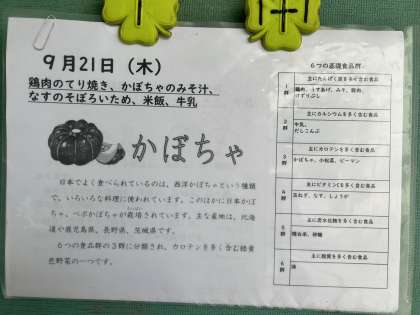 9月21日(木)
鶏肉のてり焼き、かぼちゃのみそ汁、
なすのそぼろいため、米飯、牛乳
かぼちゃ
日本でよく食べられているのは、西洋かぼちゃという種類
で、いろいろな料理に使われています。このほかに日本かぼ
ちゃ、ペポかぼちゃが栽培されています。主な産地は、北海
道や鹿児島県、長野県、茨城県です。
6つの食品群の3群に分類され、カロテンを多く含む緑黄
色野菜の一つです。
6つの基礎食品群
1群
主にたんぱく質を多く含む食品
鶏肉、うすあげ、みそ、豚肉、
けずりぶし
2群
主にカルシウムを多く含む食品
牛乳、
だしこんぶ
3群
主にカロテンを多く含む食品
かぼちゃ、小松菜、ピーマン
4群
主にビタミンCを多く含む食品
玉ねぎ、なす、しょうが
5群
主に炭水化物を多く含む食品
精白米、砂糖
6群
主に脂質を多く含む食品
油